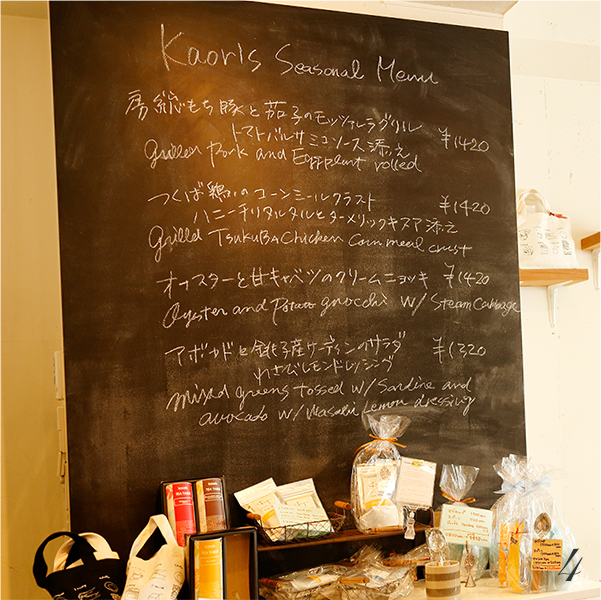 Kaoris Seasonal Menu
房総もち豚と茄子のモッツァレラグリル
トマトバルサミコソース添え ¥1420
Grilled Pork and Eggplant rolled
つくば鶏のコーンミールクラスト
ハニーチリタルタルとターメリックキヌア添え ¥1420
Grilled TsukuBA Chicken Corn meal crust
オイスターと甘キャベツのクリームニョッキ ¥1420
Oyster and Potato gnocchi w/ Steam Cabbage
アボカドと銚子産サーディンのサラダ ¥1320
わさびレモンドレッシング
mixed greens tossed w/ Sardine and
avocado w/ Wasabi Lemon dressing
4